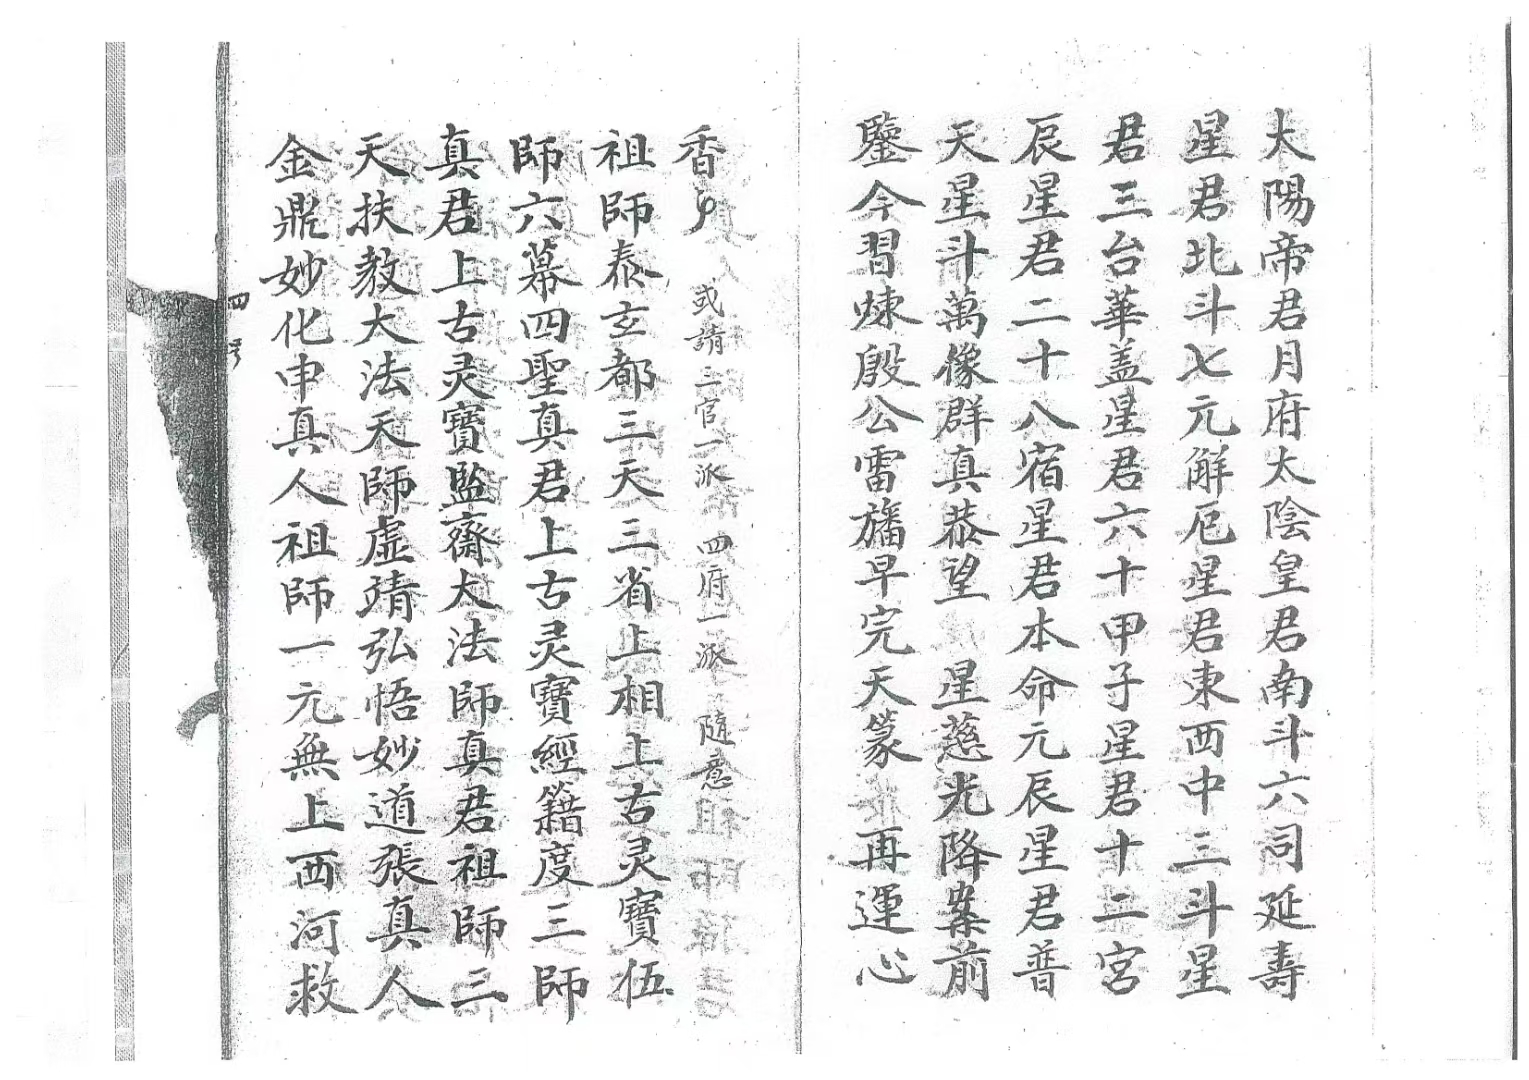 太陽帝君月府太陰皇君南斗六司延壽
星君北斗七元解厄星君東西中三斗星
君三台華盖星君六十甲子星君十二宮
辰星君二十八宿星君本命元辰星君普
天星斗萬像群真恭望 星慈光降案前
鑒今習煉殷公雷旛早完天篆 再運心
香 或請三官一派 四府一派 隨意
祖師泰玄都三天三省上相上古灵寶伍
師六幕四聖真君上古灵寶經籍度三師
真君上古灵寶監齋大法師真君祖師三
天扶教大法天師虛靖弘悟妙道張真人
金鼎妙化申真人祖師一元無上西河救
四